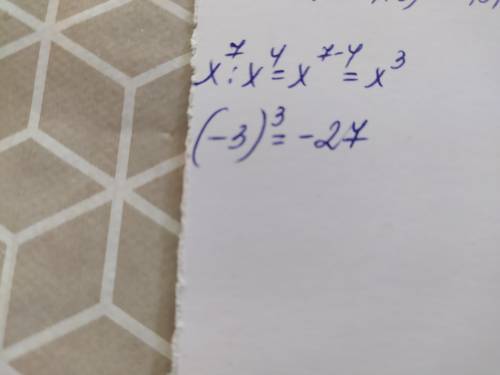 x⁷:x⁴=x⁷⁻⁴=x³
(-3)³=-27